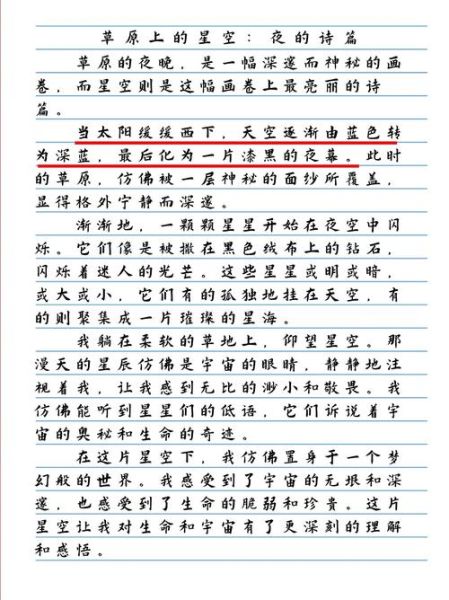 草原上的星空：夜的诗篇
草原的夜晚，是一幅深邃而神秘的画
卷，而星空则是这幅画卷上最亮丽的诗
篇。
当太阳缓缓西下，天空逐渐由蓝色转
为深蓝，最后化为一片漆黑的夜幕。此时
的草原，仿佛被一层神秘的面纱所覆盖，
显得格外宁静而深邃。
渐渐地，一颗颗星星开始在夜空中闪
烁。它们像是被撒在黑色绒布上的钻石，
闪烁着迷人的光芒。这些星星或明或暗，
或大或小，它们有的孤独地挂在天空，有
的则聚集成一片璀璨的星海。
我躺在柔软的草地上，仰望星空。那
漫天的星辰仿佛是宇宙的眼睛，静静地注
视着我，让我感到无比的渺小和敬畏。我
仿佛能听到星星们的低语，它们诉说着宇
宙的奥秘和生命的奇迹。
在这片星空下，我仿佛置身于一个梦
幻般的世界。我感受到了宇宙的无垠和深
邃，也感受到了生命的脆弱和珍贵。这片
星空让我对生命和宇宙有了更深刻的理解
和感悟。